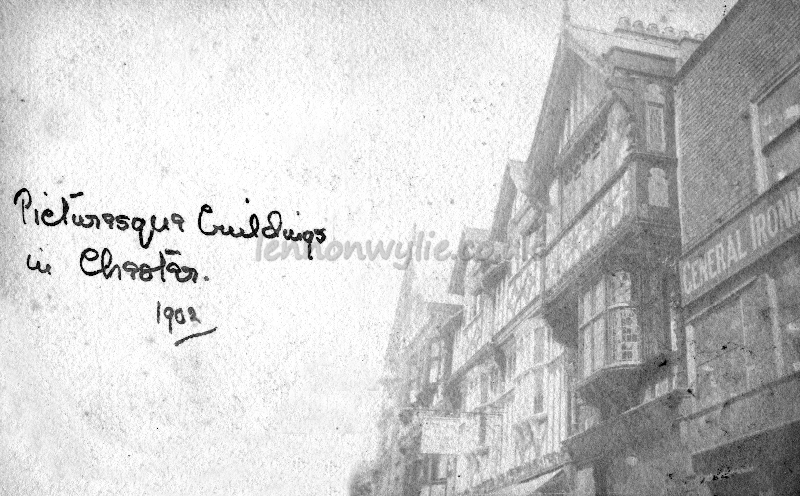 Picturesque buildings
in Chester.
1902
lennonwylie.co.uk
GENERAL IRONM